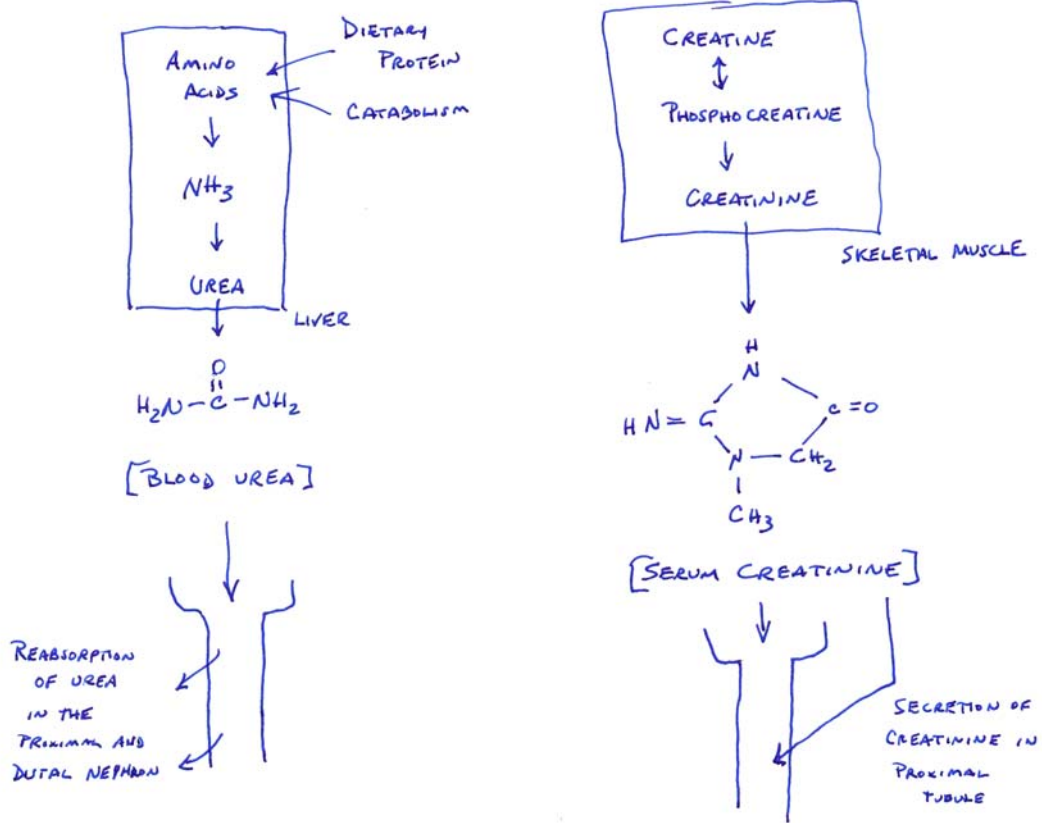 DIETARY
PROTEIN
AMINO
ACIDS
CATABOLISM
NH3
UREA
LIVER
O
H2N-C-NH2
[BLOOD UREA]
REABSORPTION
OF UREA
IN THE
PROXIMAL AND
DISTAL NEPHRON
CREATINE
PHOSPHOCREATINE
CREATININE
SKELETAL MUSCLE
H
N
HN=C
C=O
N-CH2
CH3
[SERUM CREATININE]
SECRETION OF
CREATININE IN
PROXIMAL
TUBULE